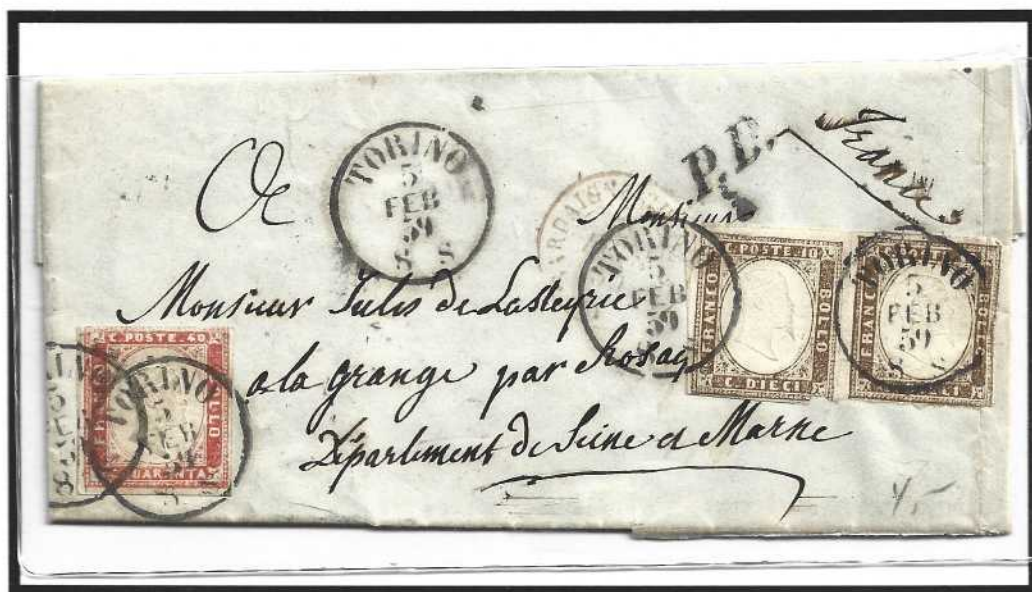 TORINO
5
FEB
59
8 S
P.D.
France
A
Monsieur
Monsieur Jules de Lasteyrie
a la grange par Rosay
Département de Seine et Marne
TORINO
5
FEB
59
C. POSTE 10
FRANCO
BOLLO
C. DIECI
TORINO
5
FEB
59
FRANCO
BOLLO
C. POSTE. 40
BOLLO
QUARANTA
TORINO
5
FEB
59
8